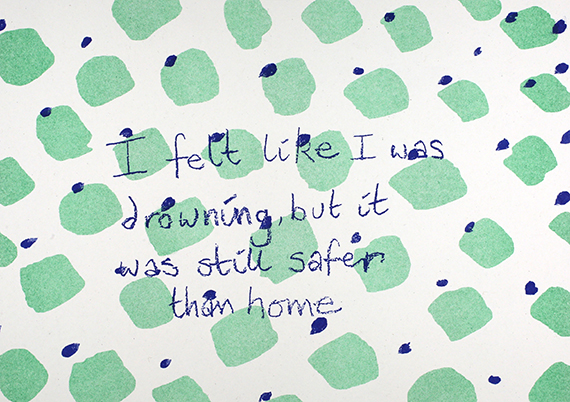 I felt like I was
drowning, but it
was still safer
than home